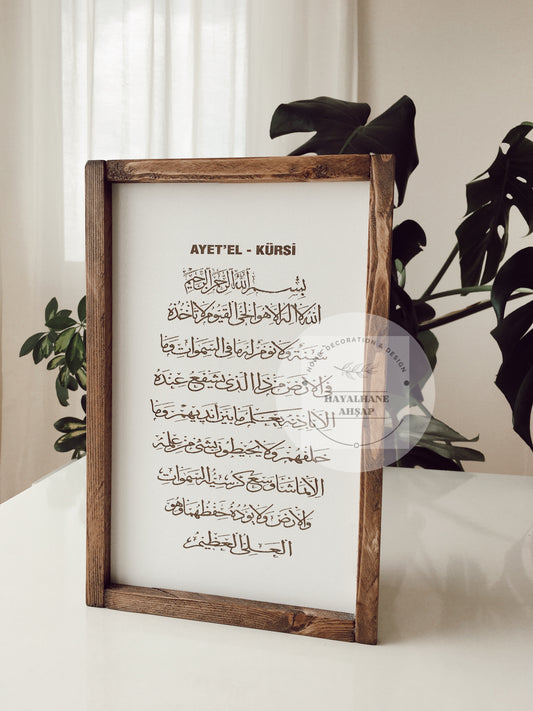 AYET'EL - KÜRSİ
بسم الله الرحمن الرحيم
الله لا اله الا هو الحي القيوم لا تأخذه
سنة ولا نوم له ما في السموات وما
في الارض من ذا الذي يشفع عنده
الا باذنه يعلم ما بين ايديهم وما
خلفهم ولا يحيطون بشئ من علمه
الا بما شاء وسع كرسيه السموات
والارض ولا يؤده حفظهما وهو
العلي العظيم
HOME DECORATION & DESIGN
HAYALHANE
AHŞAP